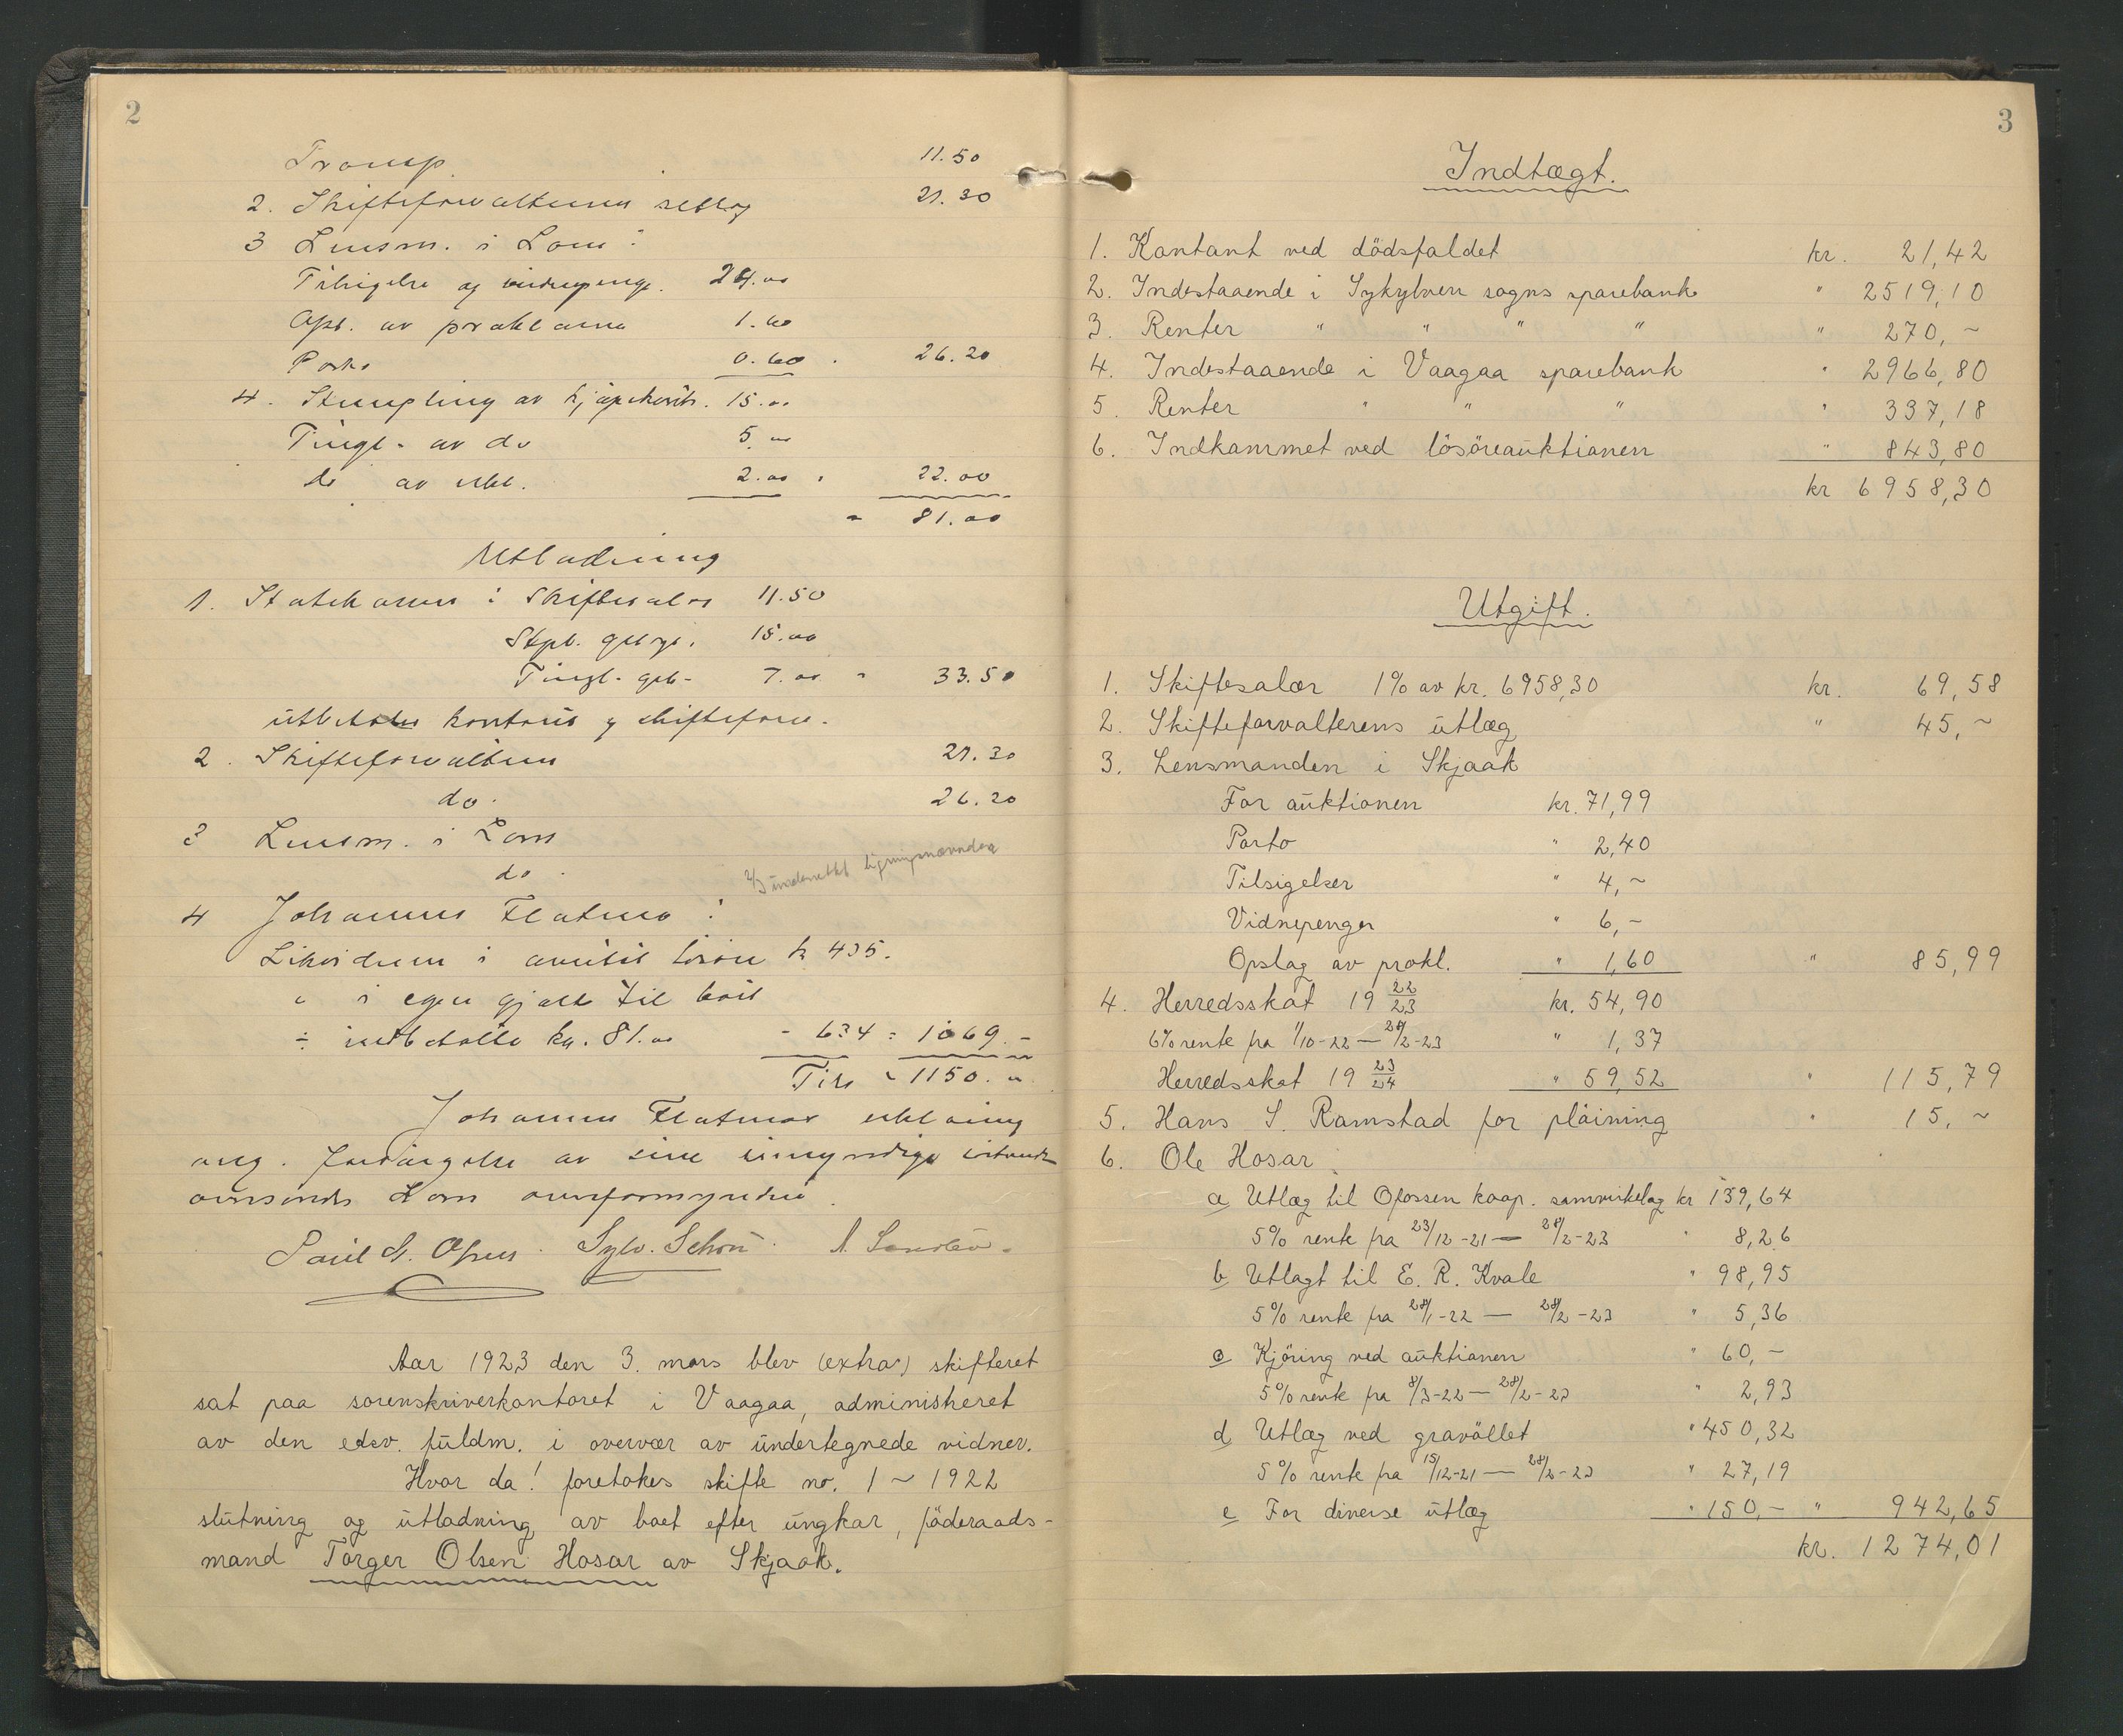 2
Transp. 11.50
2. Skifteforvalterens utlæg 21.30
3 Lensm. i Lom:
Tilsigelse og vidnepenge. 24.00
Opsl. av proklama 1.60
Porto 0.60 " 26.20
4. Stempling av kjøpekontr. 15.00
Tingl. av do 5.00
do av erkl. 2.00 " 22.00
" 81.00
Utlodning
1. Statskassen: Skiftesalær 11.50
Stpl. gebyr. 15.00
Tingl. geb. 7.00 " 33.50
utbetales kontant g skifteforv.
2. Skifteforvalteren 21.30
do.
3 Lensm. i Lom 26.20
do.
2/3 underrettet ligningsnævnden
4 Johannes Flatmo:
Likvideres i avertit løsøre kr 435.
" i egen gjæld til boet
÷ indbetalte kr. 81.00 - 634 = 1069.-
Tils " 1150.00
Johannes Flatmos erklæring
ang. forsørgelse av sine umyndige
oversendes Lom overformynderi.
Paul A. Øfsen. Sylv. Schou. A. Sandbu.
Aar 1923 den 3. mars blev (extra-) skifteret
sat paa sorenskriverkontoret i Vaagaa, administreret
av den edsv. fuldm. i overvær av undertegnede vidner.
Hvor da! foretokes skifte no. 1 ~ 1922
slutning og utlodning av boet efter ungkar, föderaads-
mand Torger Olsen Hosar av Skjaak.
3
Indtægt.
1. Kontant ved dödsfaldet kr. 21,42
2. Indestaaende i Sykylven sogns sparebank " 2519,10
3. Renter " " " " " 270,~
4. Indestaaende i Vaagaa sparebank " 2966,80
5. Renter " " " " 337,18
6. Indkommet ved lösöreauktionen " 843,80
kr 6958,30
Utgift.
1. Skiftesalær 1% av kr. 6958,30 kr. 69,58
2. Skifteforvalterens utlæg " 45,~
3. Lensmanden i Skjaak
For auktionen kr. 71,99
Porto " 2,40
Tilsigelser " 4,~
Vidnepenger " 6,~
Opslag av prokl. " 1,60 " 85,99
4. Herredsskat 19 22/23 kr. 54,90
6% rente fra 1/10-22 — 28/2-23 " 1,37
Herredsskat 19 23/24 " 59,52 " 115,79
5. Hans S. Ramstad for pløining " 15,~
6. Ole Hosar
a Utlæg til Ofossen koop. samvirkelag kr 139,64
5% rente fra 23/12-21 — 28/2-23 " 8,26
b Utlagt til E. R. Kvale " 98,95
5% rente fra 28/1-22 — 28/2-23 " 5,36
c Kjöring ved auktionen " 60,-
5% rente fra 8/3-22 — 28/2-23 " 2,93
d Utlæg ved gravöllet " 450,32
5% rente fra 15/12-21 — 28/2-23 " 27,19
e For diverse utlæg " 150,- " 942,65
kr. 1274,01